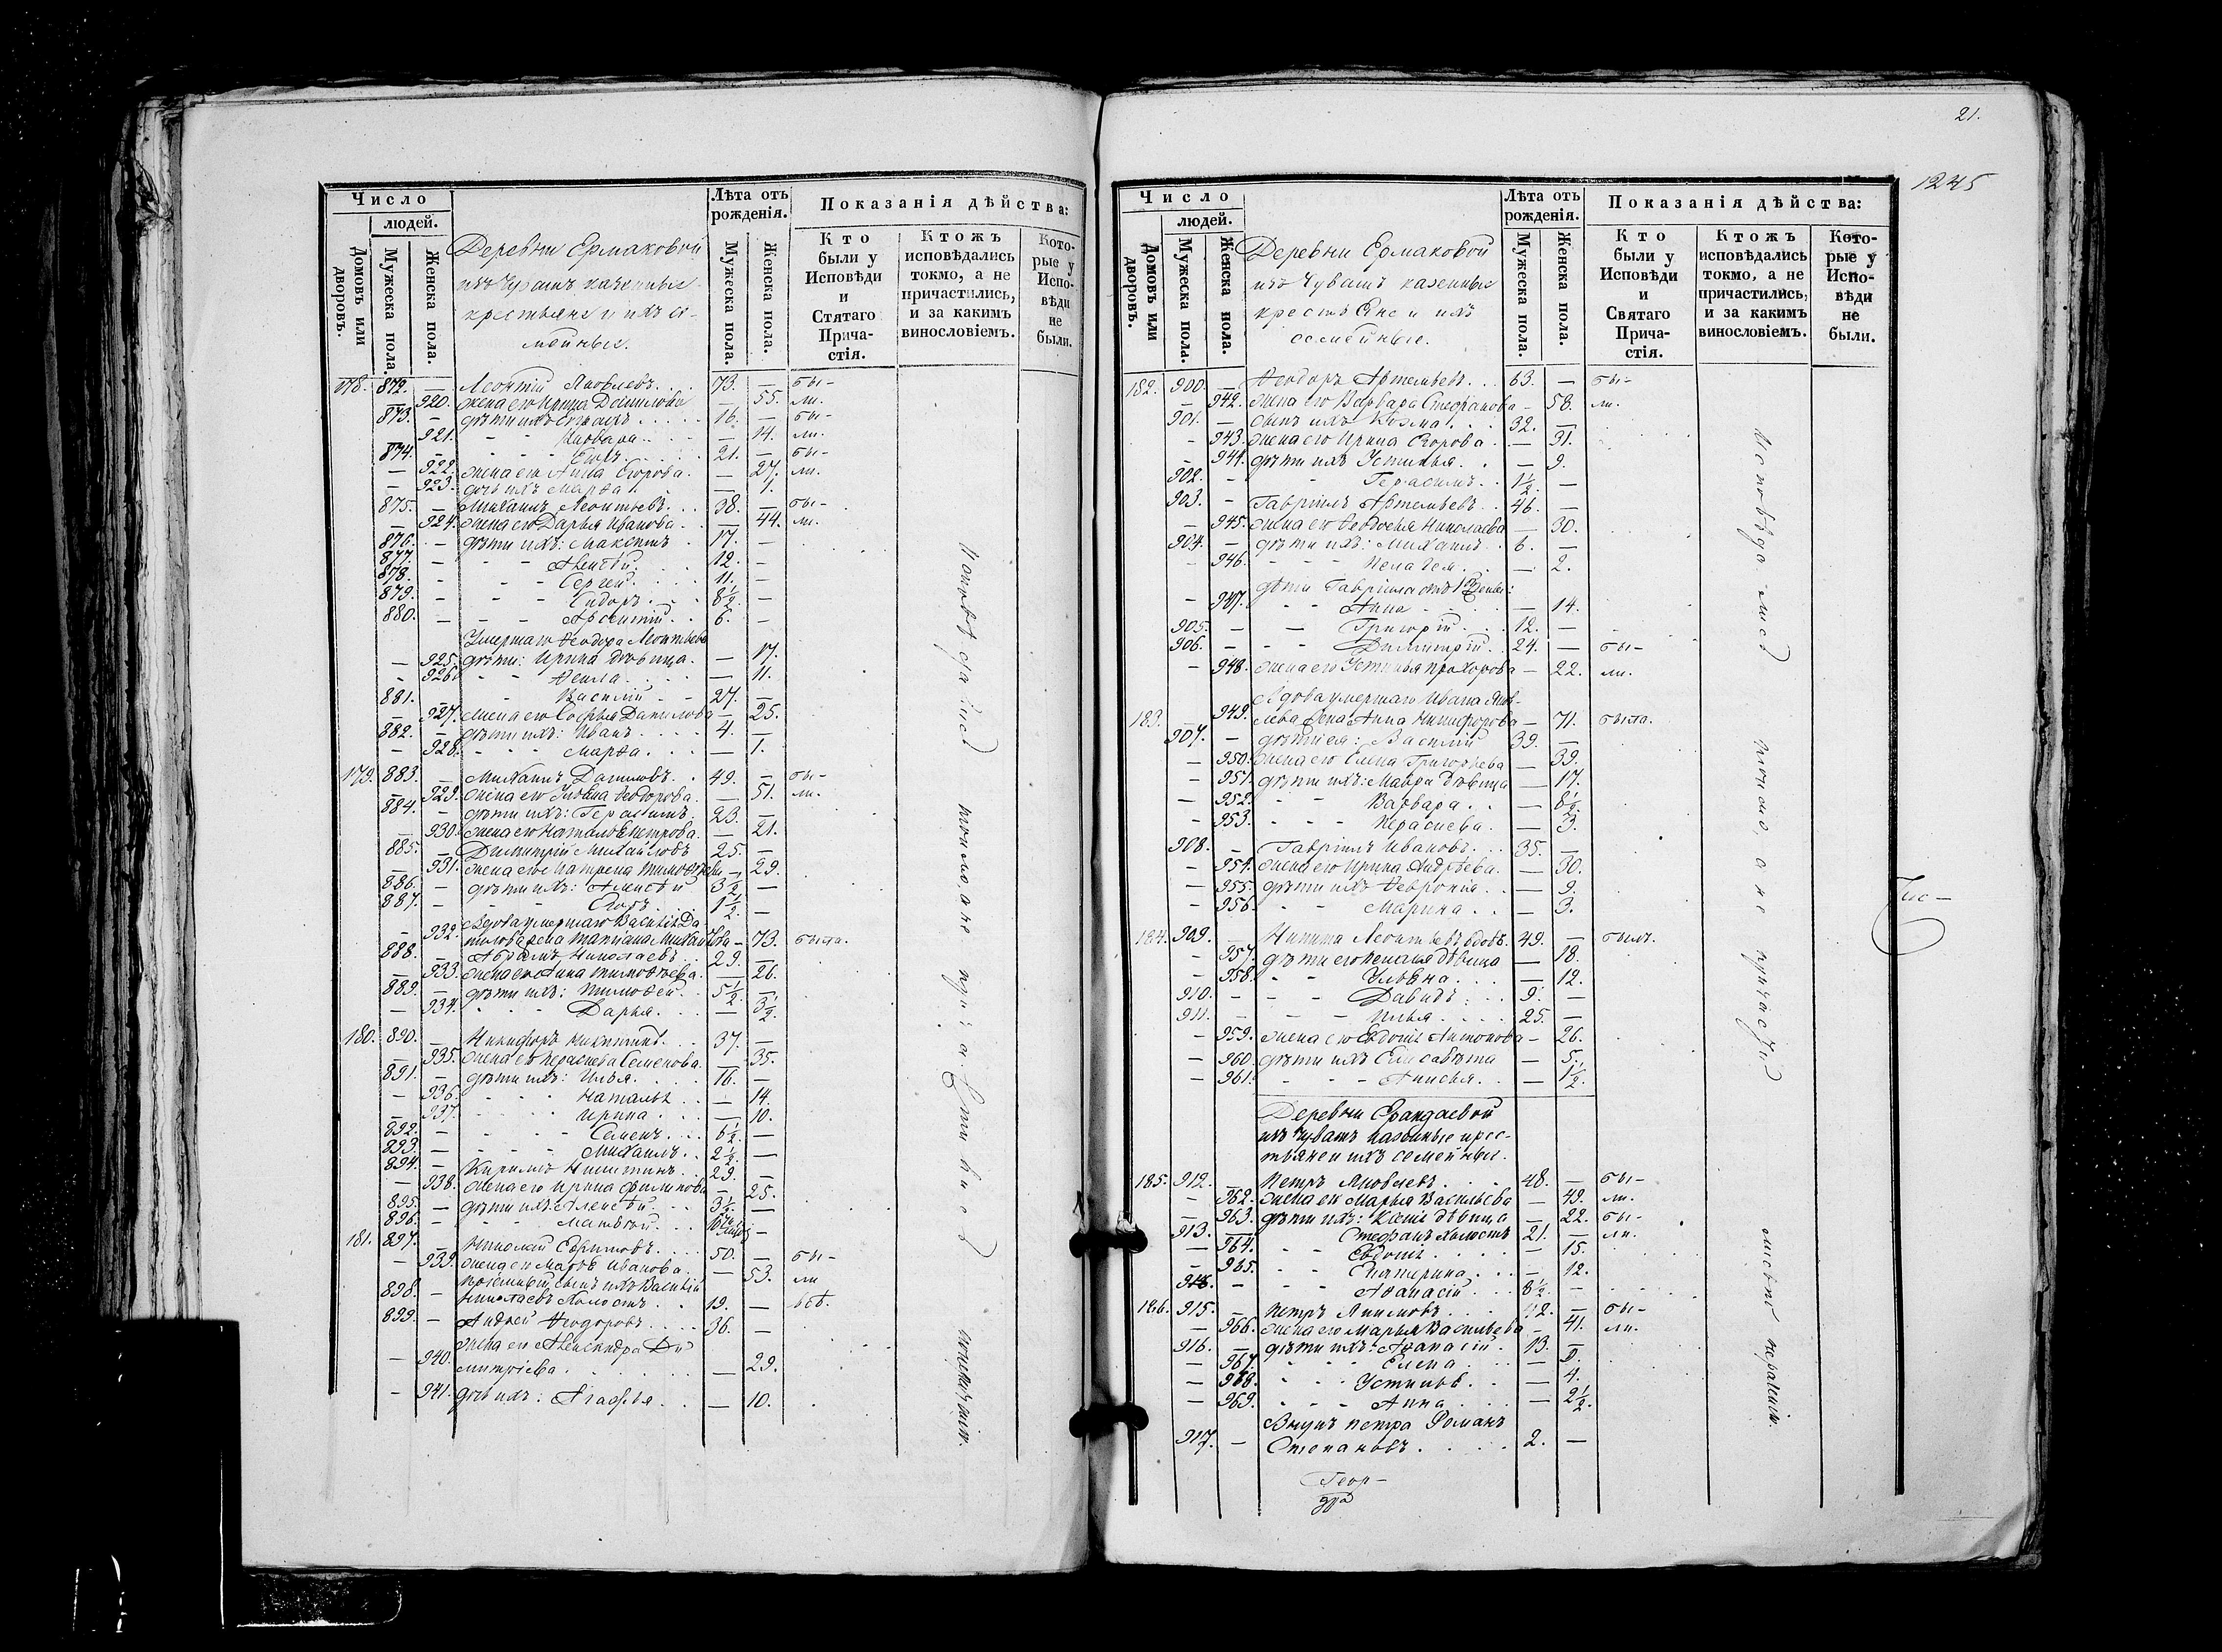 Число
людей.
Домовъ или дворовъ.
Мужеска пола.
Женска пола.
Деревни Ермаковой
изъ Чувашъ казенные
крестьяне и ихъ се-
мейные.
Лѣта отъ рожденія.
Мужеска пола.
Женска пола.
Показанія дѣйства:
Кто были у Исповѣди и Святаго Прича-стія.
Ктожъ исповѣдались токмо, а не причастились, и за какимъ винословіемъ.
Кото-рые у Испо-вѣди не были.
178. 872. — Леонтій Яковлевъ. 73. — бы-
— 920. жена его Ирина Данилова — 55. ли.
873. — дѣти ихъ: 16. — бы-
921. - - Варвара — 14. ли.
874. - - 21. — бы-
— 922. жена его Анна Егорова. — 27. ли.
— 923. дочь ихъ Марѳа. — 1.
875. — Михаилъ Леонтьевъ. 38. — бы-
— 924. жена его Дарья Иванова. — 44. ли.
876. — дѣти ихъ: Максимъ 17. —
877. - - Алексѣй. 12. -
878. - - Сергей. 11. —
879. - - Сидоръ. 8½ —
880. - - Арсентій. 6. -
Умершаго Ѳеодора Леонтьева
— 925. дѣти: Ирина дѣвица. — 17.
- 926. - - Ѳекла. — 11.
881. - Василій 27. —
— 927. жена его Софья Данилова — 25.
882. — дѣти ихъ: Иванъ 4. —
- 928. - - Марѳа. — 1.
179. 883. — Михаилъ Даниловъ. 49. — бы-
— 929. жена его Ульяна Ѳеодорова. — 51. ли.
884. — дѣти ихъ: Герасимъ. 23. —
— 930. жена его Наталья Петрова. — 21.
885. — Димитрій Михайловъ 25. —
— 931. жена его Матрена Тимоѳеева — 29.
886. — дѣти ихъ: Алексѣй 3½ —
887. — - - Егоръ 1½ —
Вдова умершаго Василія Да-
- 932. нилова жена Татіана Михайлова — 73. была.
888. Абрамъ Николаевъ. 29. —
— 933. жена его Анна Тимоѳеева. — 26.
889. — дѣти ихъ: Тимоѳей. 5½ —
— 934. - - Дарья. — 3½
180. 890. — Никифоръ Никитинъ. 37. —
— 935. жена его Параскева Семенова. — 35.
891. — дѣти ихъ: Илья. 16. —
— 936. - - Наталья — 14.
— 937. - - Ирина. — 10.
892. — - - Семенъ. 6½ —
893. — - - Михаилъ. 2½ —
894. — Кирилъ Никитинъ. 29. —
— 938. жена его Ирина Филипова — 25.
895. — дѣти ихъ: Алексѣй. 3½ —
896. — - - Матвей. —
181. 897. — Николай Ефимовъ. 50. — бы-
— 939. жена его Марѳа Иванова. — 53. ли
сынъ ихъ Василій
898. — Николаевъ холостъ. 19. —
899. — Андрей Ѳеодоровъ. 36. —
жена его Александра Ди-
— 940. митріева. — 29.
— 941. дочь ихъ: Агафья. — 10.
21.
1245
Число
людей.
Домовъ или дворовъ.
Мужеска пола.
Женска пола.
Деревни Ермаковой
изъ Чувашъ казенные
крестьяне и ихъ
семейные.
Лѣта отъ рожденія.
Мужеска пола.
Женска пола.
Показанія дѣйства:
Кто были у Исповѣди и Святаго Прича-стія.
Ктожъ исповѣдались токмо, а не причастились, и за какимъ винословіемъ.
Кото-рые у Испо-вѣди не были.
182. 900. — Ѳеодоръ Артемьевъ. 63. — бы-
— 942. жена его Варвара Стефанова — 58. ли.
901. — сынъ ихъ Козма. 32. —
- 943. жена его Ирина Егорова. — 31.
- 944. дѣти ихъ Устинья. — 9.
902. - - Герасимъ. 1½ —
903. - Гавріилъ Артемьевъ. 46. —
— 945. жена его Ѳеодосья Николаева — 30.
904. — дѣти ихъ: Михаилъ. 6. —
— 946. - - Пелагея. — 2.
дѣти Гавріила отъ 1й жены:
— 947. - - Анна — 14.
905. — — Григорій. 12. —
906. — - - Димитрій. 24. — бы-
— 948. жена его Устинья Прохорова — 22. ли.
Вдова умершаго Ивана Яков-
183. — 949. лева жена Анна Никифорова — 71. была.
907. — дѣти ея: Василій 39. —
— 950. жена его Елена Григорьева — 39.
— 951. дѣти ихъ: Мавра дѣвица — 17.
— 952. - - Варвара. — 8½
— 953. - - Параскева. — 3.
908. - Гавріилъ Ивановъ. 35. —
— 954. жена его Ирина Андрѣева. — 30.
— 955. дѣти ихъ Ѳевронія. — 9.
— 956. - - Марина. — 3.
184. 909. — Никита Леонтьевъ вдовъ. 49. — былъ.
- 957. дѣти его Пелагея дѣвица — 18.
— 958. - - Ульяна. — 12.
910. — - - Давидъ. 9. —
911. — - - Илья. 25. —
— 959. жена его Евдокія Антонова — 26.
— 960. дѣти ихъ Елисавета — 5.
— 961. - - Анисья. — 1½
Деревни Ерандаевой
изъ Чувашъ казенные крес-
тьяне и ихъ семейные.
185. 912. — Петръ Яковлевъ. 48. — бы-
— 962. жена его Марья Васильева — 49. ли.
— 963. дѣти ихъ: дѣвица — 22. бы-
913. — Стефанъ холостъ 21. — ли.
— 964. - - Евдокія — 15.
— 965. - - Екатерина. — 12.
914. - - Аѳанасій. 8½ —
186. 915. — Петръ Якимовъ. 42. — бы-
— 966. жена его Марья Васильева — 41. ли.
916. — дѣти ихъ: Аѳанасій. 13. —
— 967. - - Елена —
— 968. - - Устинья. — 4.
— 969. - - Анна. — 2½
Внукъ Петра Романъ
917. — Степановъ. 2. —